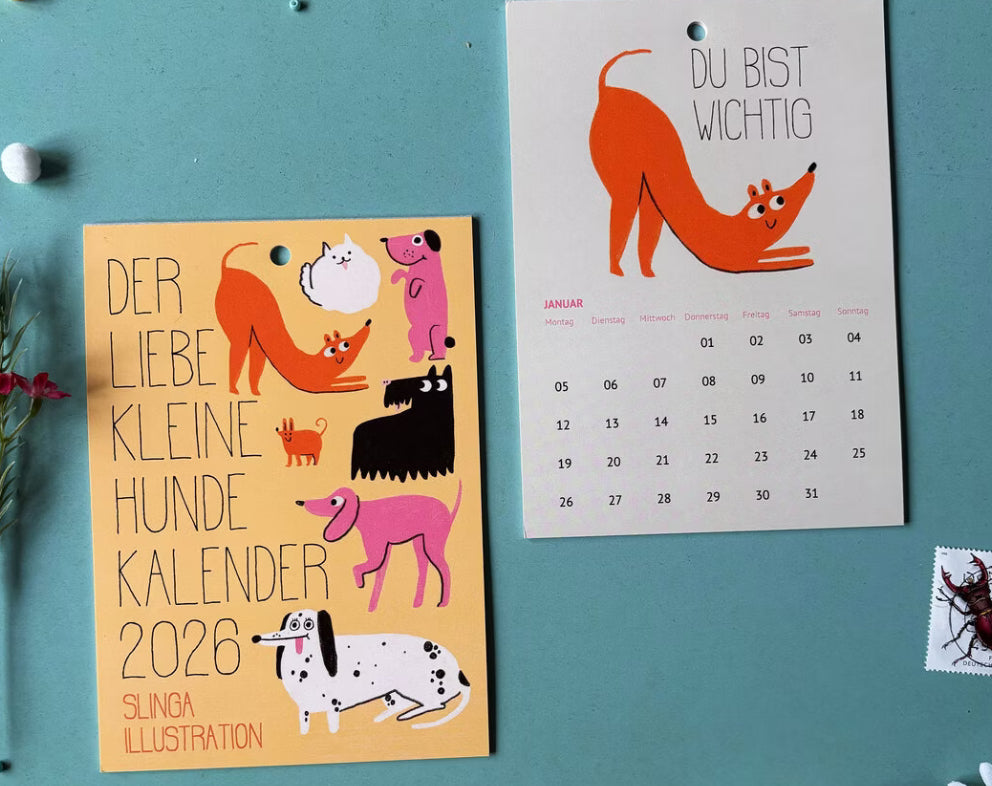 DER
LIEBE
KLEINE
HUNDE
KALENDER
2026
SLINGA
ILLUSTRATION
DU BIST
WICHTIG
JANUAR
Montag Dienstag Mittwoch Donnerstag Freitag Samstag Sonntag
01 02 03 04
05 06 07 08 09 10 11
12 13 14 15 16 17 18
19 20 21 22 23 24 25
26 27 28 29 30 31